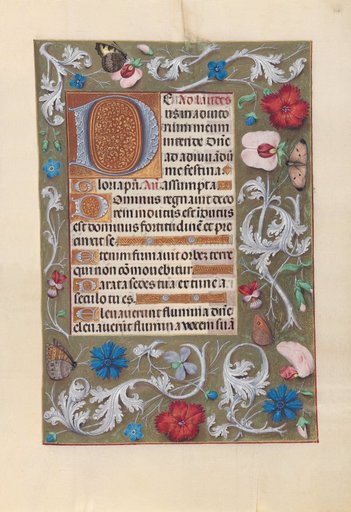 D Eus Ad laudes
in adiuto
rium meum
intende Dñe
ad adiuvãdũ
me festina
Gloria pr̃i. Añ. assumpta
Dominus regnavit deco
rem indutus est idutus
est dominus fortitudinẽ et pre
cinxit se
Etenim firmavit orbẽ terre
qui non cõmovebitur
Parata sedes tua ex tunc a
seculo tu es
Elevaverunt flumina dñe
elevaverũt flumina vocem suã